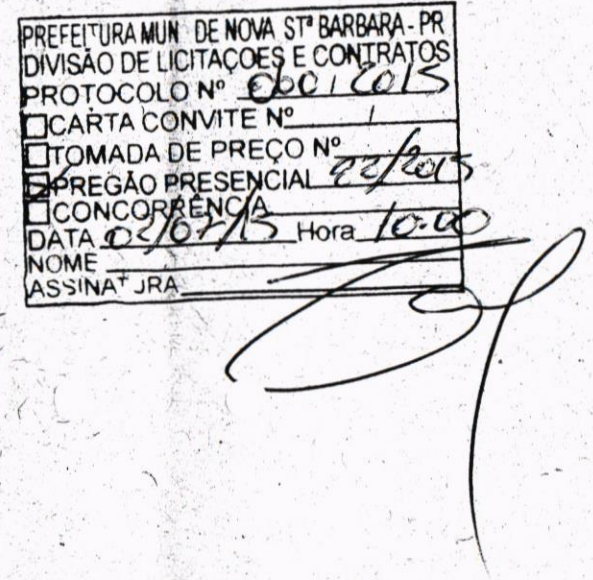 PREFEITURA MUN DE NOVA STª BARBARA - PR
DIVISÃO DE LICITAÇOES E CONTRATOS
PROTOCOLO Nº 060 / 2015
CARTA CONVITE Nº /
TOMADA DE PREÇO Nº
PREGÃO PRESENCIAL 22/2015
CONCORRÊNCIA
DATA 02/07/15 Hora 10:00
NOME
ASSINAT JRA